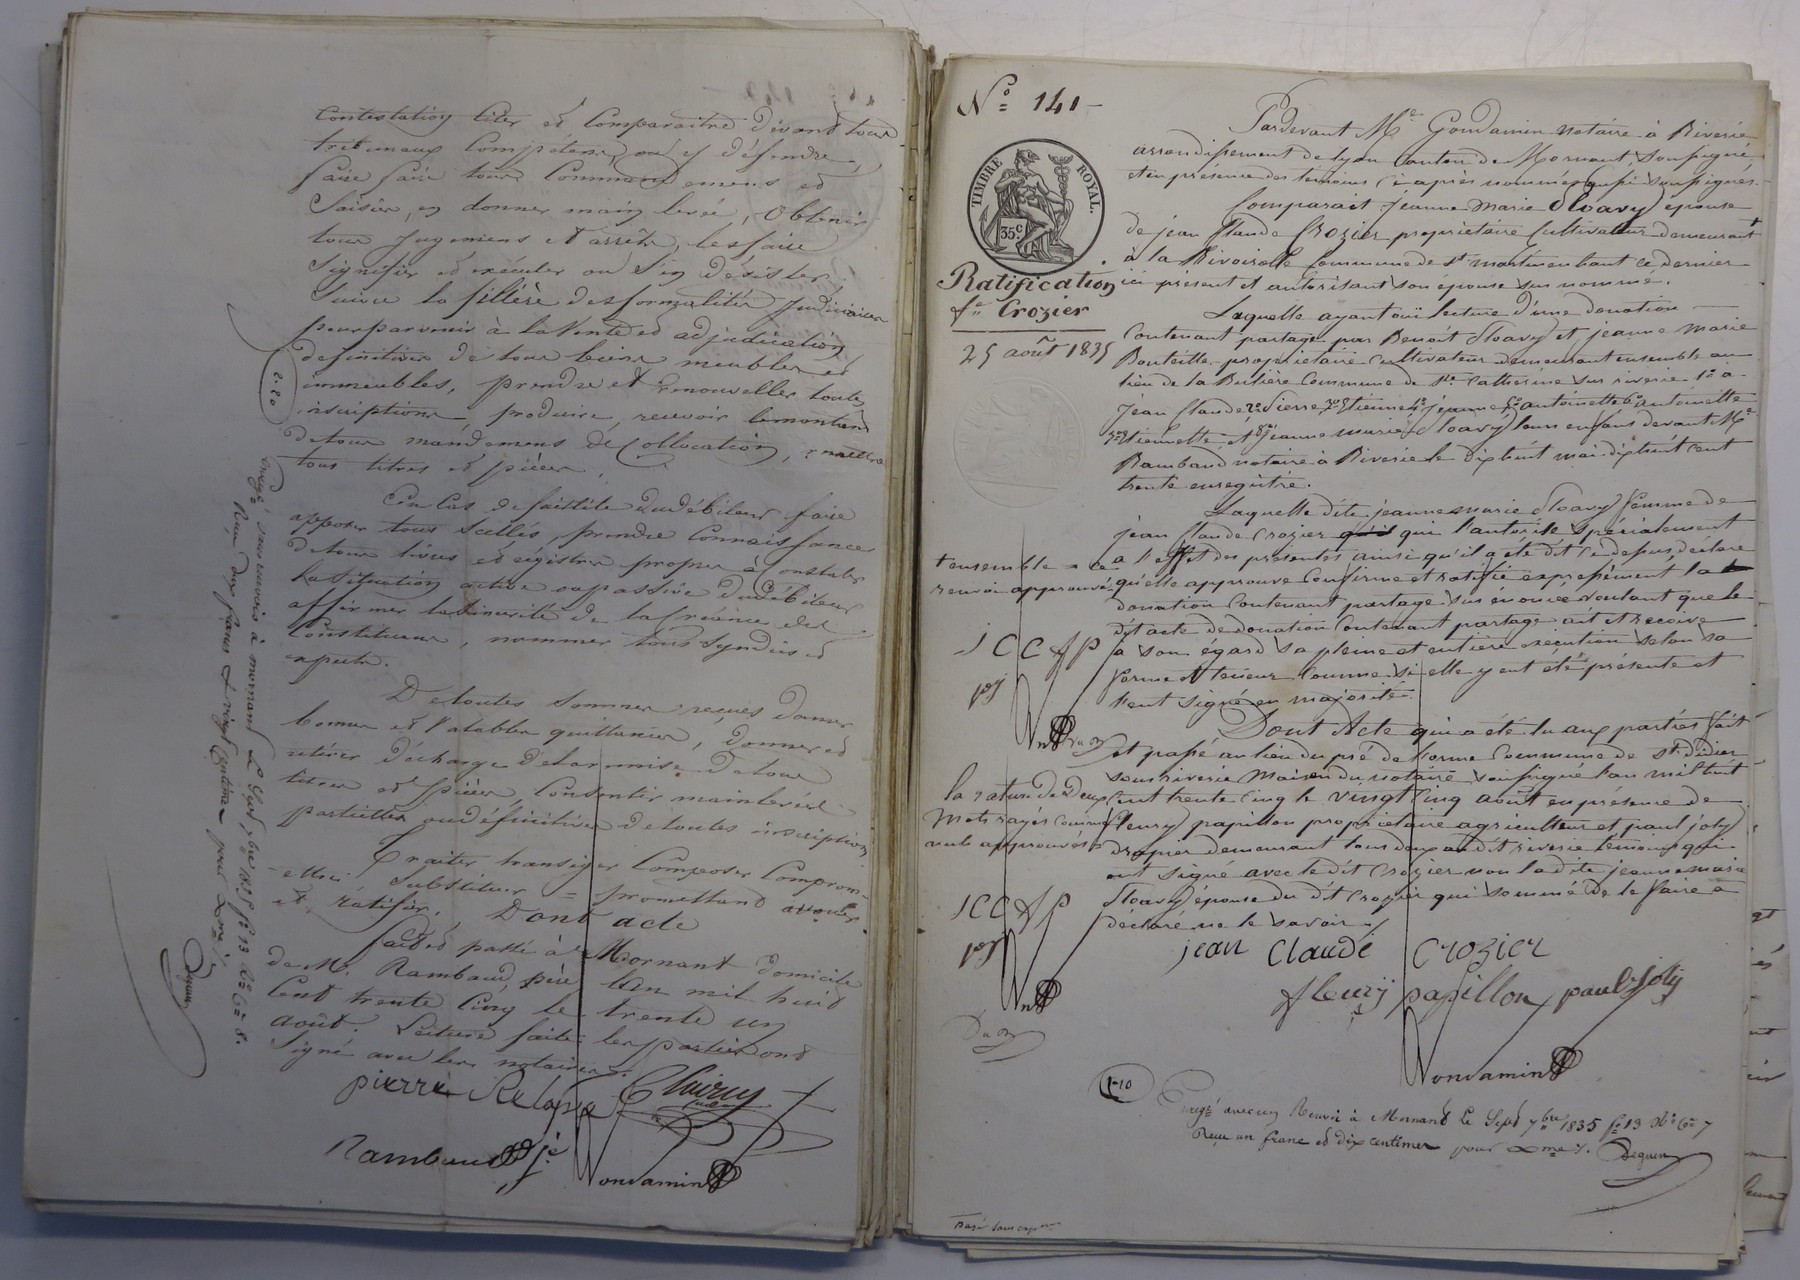 contestation citer et comparaitre devant tous
tribunaux compétens, ou y défendre,
faire faire tous commandemens et
saisies, en donner main levée, obtenir
tous jugemens et arrêts, les faire
signifier et exécuter ou s'en désister
suivre la fillière des formalités judiciaires
pour parvenir à la vente et adjudication
definitive de tous biens meubles et
immeubles, prendre et renouveller toutes
inscriptions produire, recevoir le montant
de tous mandemens de collocation, remettre
tous titres et pièces,
En cas de faillite du débiteur faire
apposer tous scellés, prendre connaissance
de tous livres et régistres propres à constater
la situation active ou passive du débiteur
affirmer la sincerité de la créance des
constituans, nommer tous syndics et
experts.
De toutes sommes reçues donner
bonnes et valables quittances, donner et
retirer décharge de la remise de tous
titres et pièces consentir mainlevées
partielles ou définitives de toutes inscriptions
Traiter transiger composer comprom-
-ettre substituer = promettant avouer
et ratifier. Dont acte
fait et passé à Mornant domicile
de Me Rambaud, père l'an mil huit
cent trente cinq le trente un
août. Lecture faite les parties ont
signé avec les notaires.
pierre Relave
Rambaud
Gondamin
2-20
Enregé sans renvois à mornant le Sept 7bre 1835 fo 13 Ro Ce 8.
Reçu deux francs & vingt centimes pour Xme %.
Deguen
No 141 -
TIMBRE ROYAL.
35 c.
Ratification
fe Crozier
25 août 1835
Pardevant Me Gondamin notaire à Riverie
arrondissement de lyon canton de Mornant, soussigné
et en présence des temoins ci après nommés aussi soussignés.
Comparait jeanne Marie Cloavy épouse
de jean Claude Crozier propriétaire cultivateur demeurant
à la Rivoirolle commune de st martin en haut ce dernier
ici présent et autorisant son épouse sus nommé.
Laquelle ayant oui lecture d'une donation
contenant partage par Benoit Cloavy et jeanne marie
Bouteille propriétaire cultivateurs demeurant ensemble au
lieu de la Butière commune de Ste catherine sur riverie 1o a
jean Claude 2o pierre 3o Etienne 4o jeanne 5o antoinette 6o antoinette
7o Etiennette et 8o jeanne marie Cloavy leurs enfans devant Me
Rambaud notaire à Riverie le dix huit mai dix huit cent
trente enregistré.
Laquelle dite jeanne marie Cloavy femme de
jean Claude Crozier qui l'autorise spécialement
a l'effet des présentes ainsi qu'il a été dit ci dessus, déclare
qu'elle approuve confirme et ratifie expressément la
donation contenant partage sus énoncé voulant que le
dit acte de donation contenant partage ait et recoive
a son égard sa pleine et entière exécution selon sa
forme et teneur comme si elle y eut été présente et
l'eut signé en majorité.
Dont Acte qui a été lu aux parties fait
et passé au lieu du pré de lorme commune de st didier
sous riverie maison du notaire soussigné l'an mil huit
cent trente cinq le vingt cinq août en présence de
fleury papillon propriétaire agriculteur et paul joly
drapier demeurant tous deux au dit riverie témoins qui
ont signé avec le dit Crozier non la dite jeanne marie
Cloavy épouse du dit Crozier qui sommé de le faire a
déclaré ne le savoir.
+ ensemble = ce
renvoi approuvé
JCC fP
pj
la rature de deux
mots rayés comme
nuls approuvés
JCC fP
pj
jean Claude Crozier
fleury papillon paul joly
Gondamin
1-10
Enregé avec un Renvoi à Mornant le Sept 7bre 1835 fo 13 Vo Ce 7
Reçu un franc et dix centimes pour Xme %. Deguen